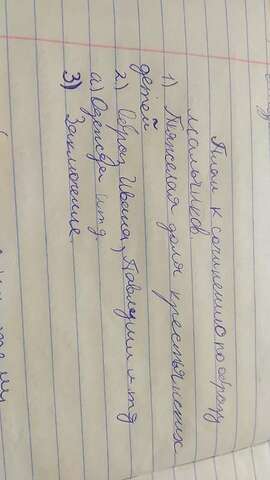 План к сочинению по образу
мальчиков.
1) Тяжелая доля крестьянских
детей
2) Образ Ивана, Павлуши и тд
а) Одежда итд.
3) Заключение.